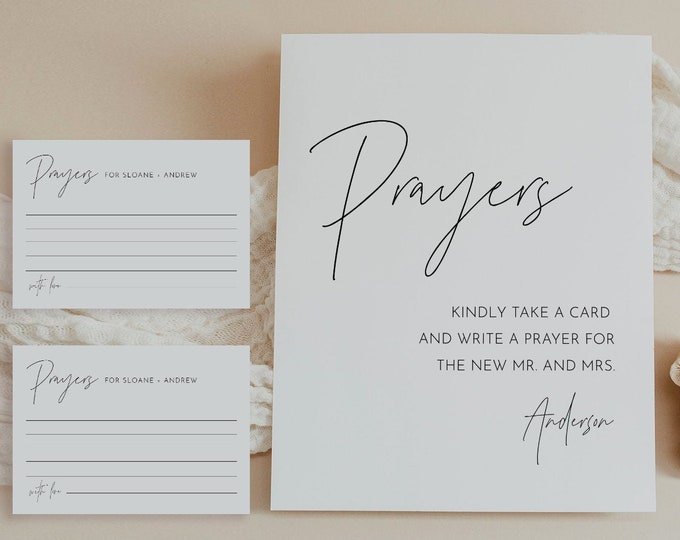 Prayers FOR SLOANE + ANDREW
with love
Prayers FOR SLOANE + ANDREW
with love
Prayers
KINDLY TAKE A CARD
AND WRITE A PRAYER FOR
THE NEW MR. AND MRS.
Anderson